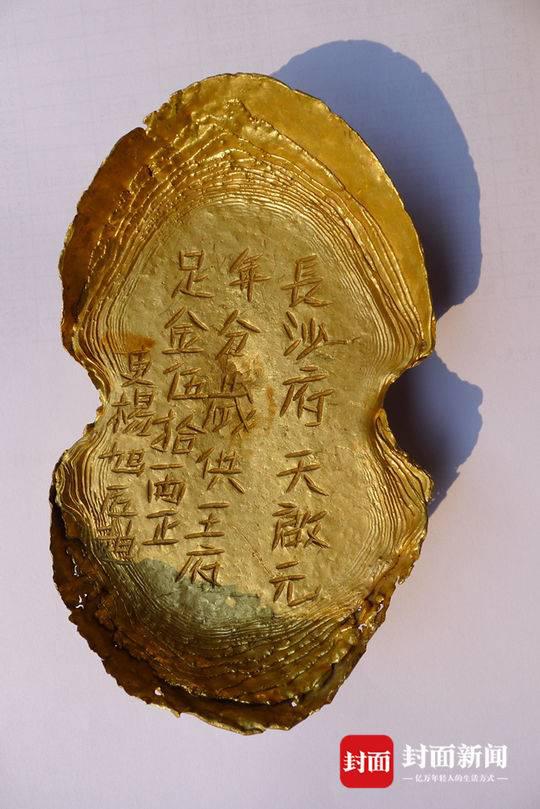 長沙府 天啟元
年分歲供王府
足金伍拾両正
吏楊旭匠
封面
封面新闻
亿万年轻人的生活方式